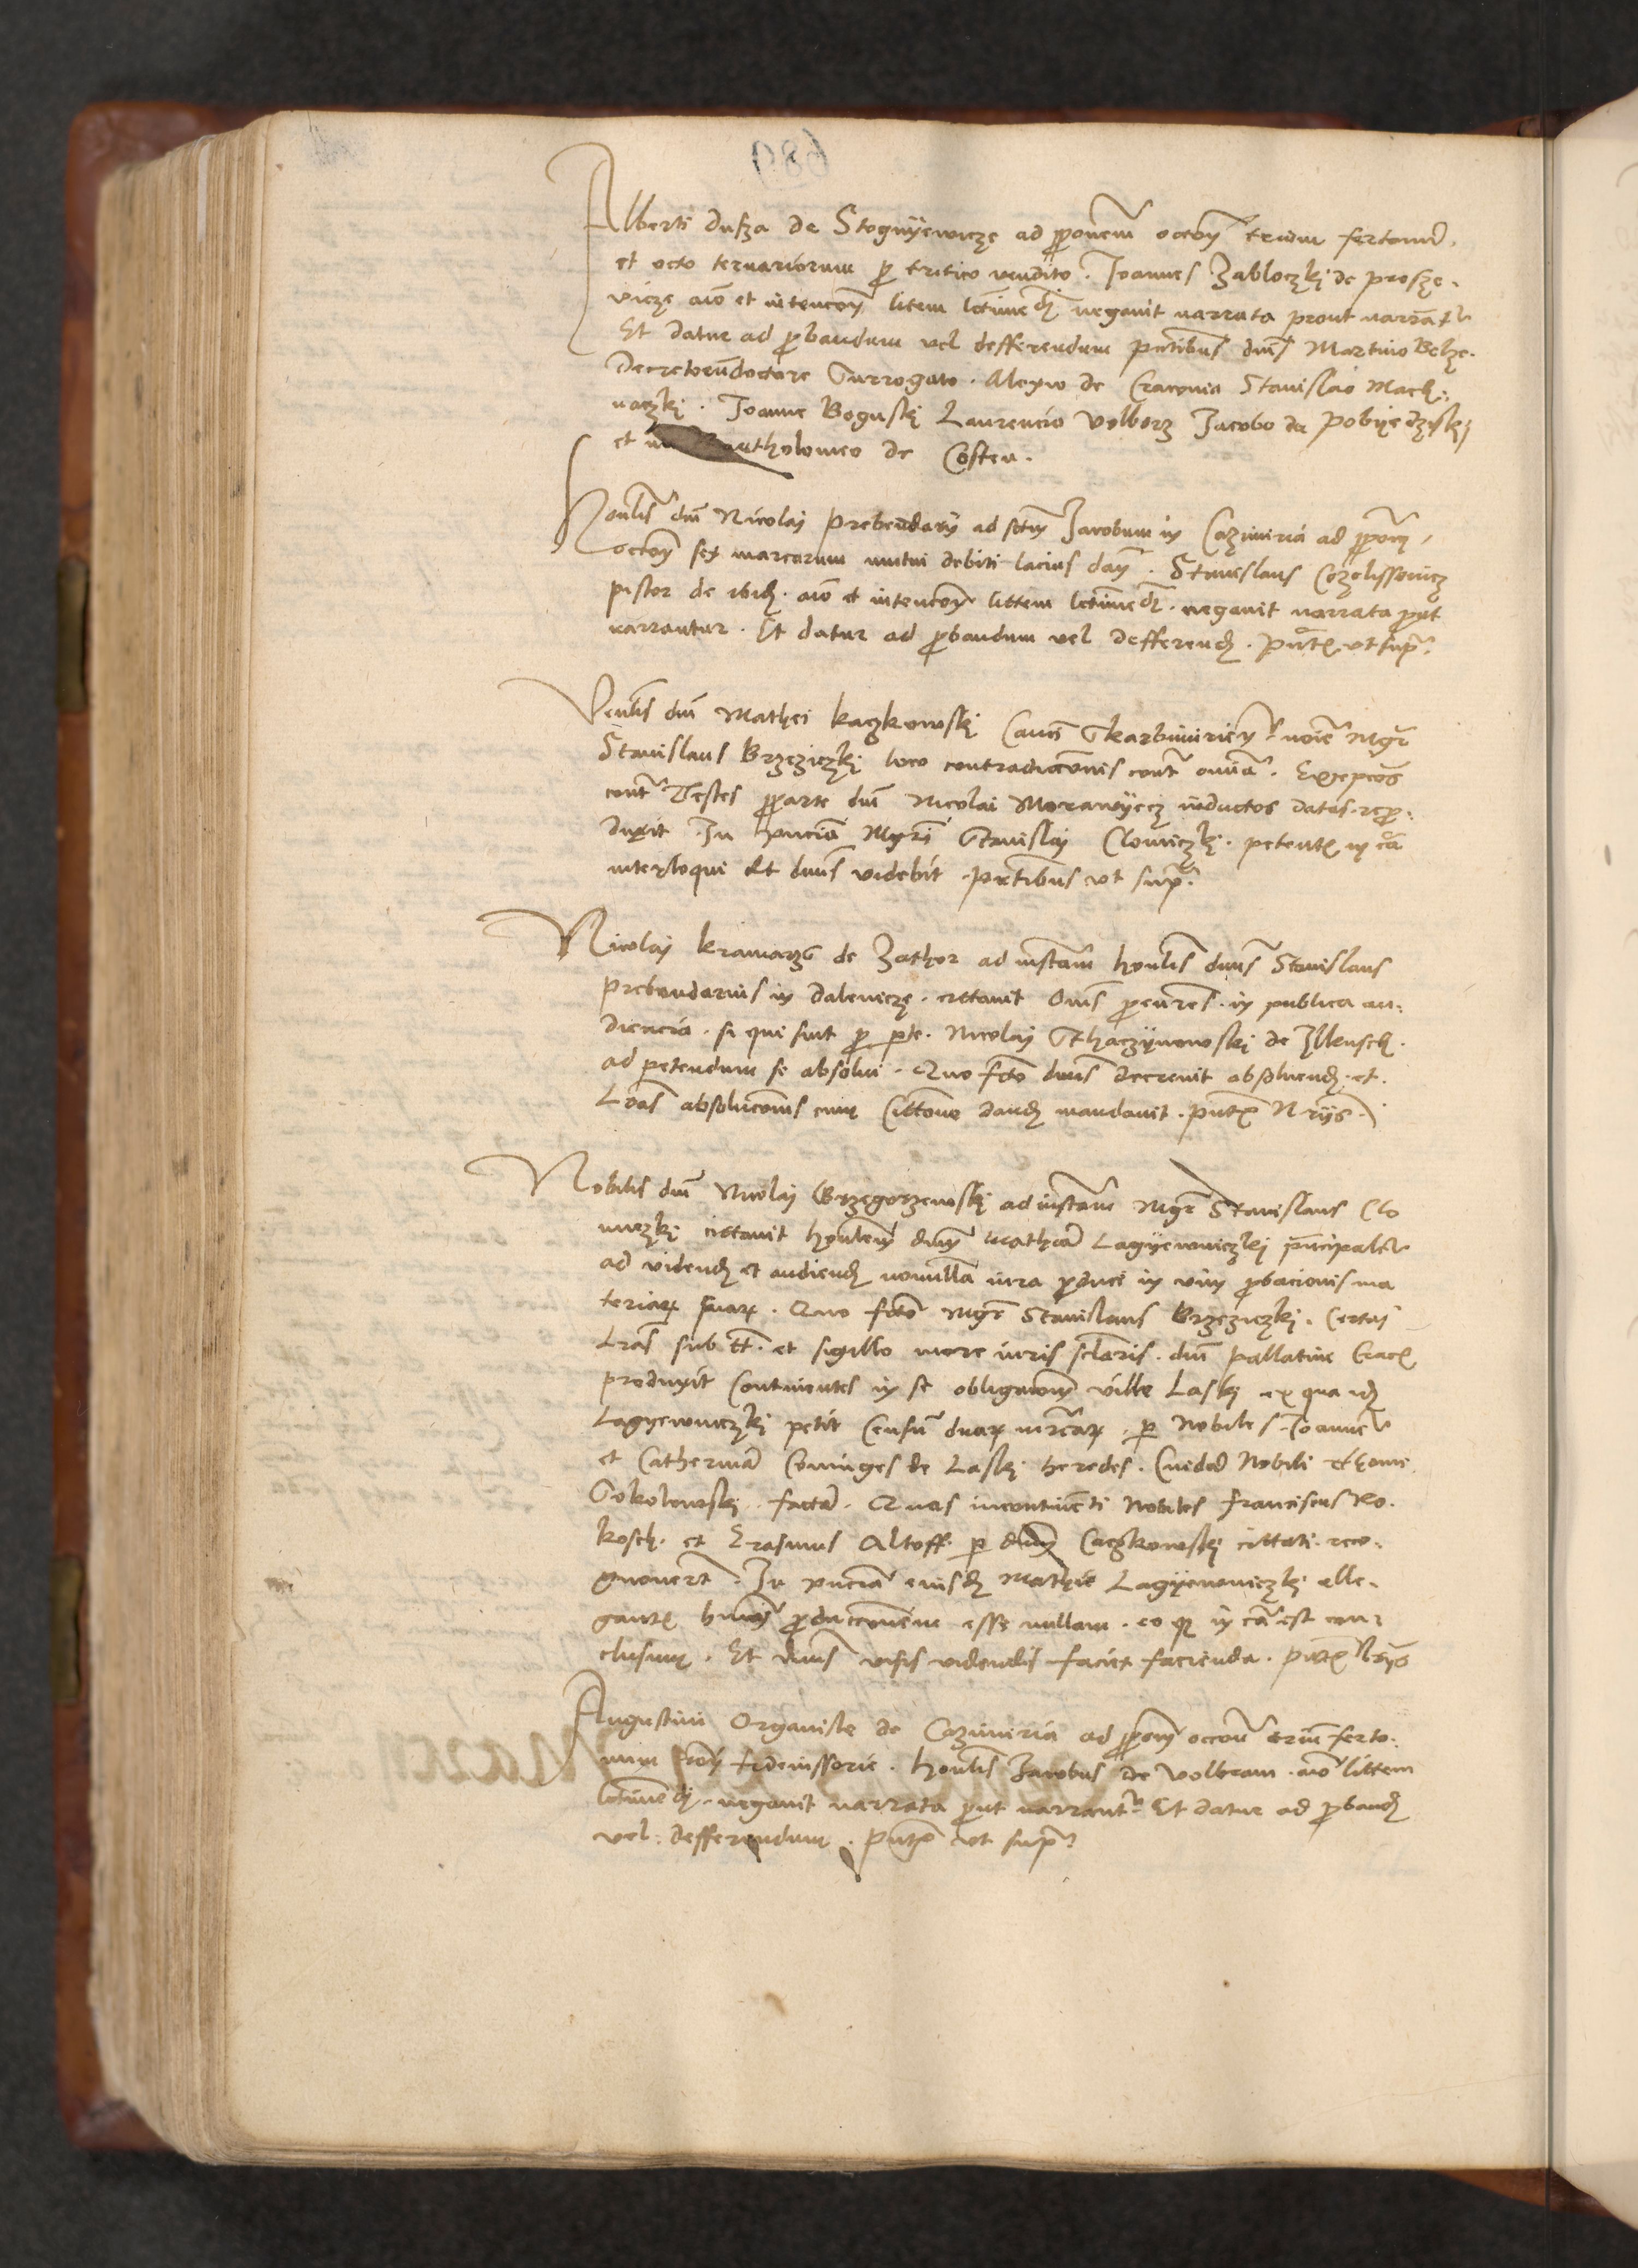 Alberti dusza de Stognyewicze ad proponem occoem trium fertonum
et octo ternariorum pro tritico vendito. Joannes Zabloczki de prosze-
vicze aio et intencoem litem lctimedi negavit narrata prout narrant
Et datur ad probandum vel defferendum pntibus dnis Martino Belze
Decretorum doctore Surrogato. Alexio de Cracovia Stanislao Mach-
naczki. Joanne Boguski Laurencio volborz Jacobo de pobyedzisky
et artholomeo de Costen.
honlis dni Nicolai prebendarii ad sctum Jacobum in Cazimiria ad proponem
occoem sex marcarum mutui debiti lacius dam. Stanislaus Cozelissowicz
pistor de ibid. aio et intencoem littem lctimedi. negavit narrata prout
narrantur. Et datur ad probandum vel defferend. pntx ut supra.
Venlis dni Mathei kaczkowski Canci Skarbimiricen noie Mgr
Stanislaus Brzeziczki loco contradiccionis contra omnia. Excepcoes
contra Testes pro parte dni Nicolai Morawyecz inductos datas repro-
duxit In pncia Mgri Stanislai Clomiczki. petentx in ca
interloqui Et dnus videbit pntibus ut supra.
Nicolai kramarz de Zathor ad instam honlis dnus Stanislaus
prebendarius in dalewicze. cittavit omnes procures in publica au-
diencia. si qui sint pro pte. Nicolai Sthaczynowski de Ilkusch.
ad petendum se absolui. Quo fcto dnus decrevit absoluend. et
Lras absolucionis cum Cittone dand mandavit. pntx Nriis.
Nobilis dni Nicolai Grzegorzewski ad instam Mgr Stanislaus Clo
miczki cittavit honlem dnum Mathia Lagyewniczki principalem
ad vidend et audiend nonnulla iura produci in vim probacionis ma
teriar suar. Quo fcto Mgr Stanislaus Brzeziczki. Certas
Lras sub tt. et sigillo more iuris sclaris. dni pallatini Crac
produxit Continentes in se obligacoem ville Laski ex qua idem
Lagyewniczki petit Censum duar mrcar. per Nobiles Joannem
et Catherina Coninges de Laski heredes. Cuidam Nobili
Sokolowski. facta. Quas incontinenti Nobiles franciscus Ro-
kosch. et Erasmus Altoff per dnum Caczkowski cittati. reco-
gnovert. In pncia eiusd Mathie Lagyewniczki alle-
gantx hmoi produccionem esse nullam. eo qz in ca est con-
clusum. Et dnus visis videndis faciet facienda. pntx Nriis
Augustini Organiste de Cazimiria ad proponem occoem trium ferto-
num rone fideiussorie. honlis Jacobus de Volbram. aio littem
lctimedi. negavit narrata prout narrantur Et datur ad proband
vel defferendum. pntx ut supra.